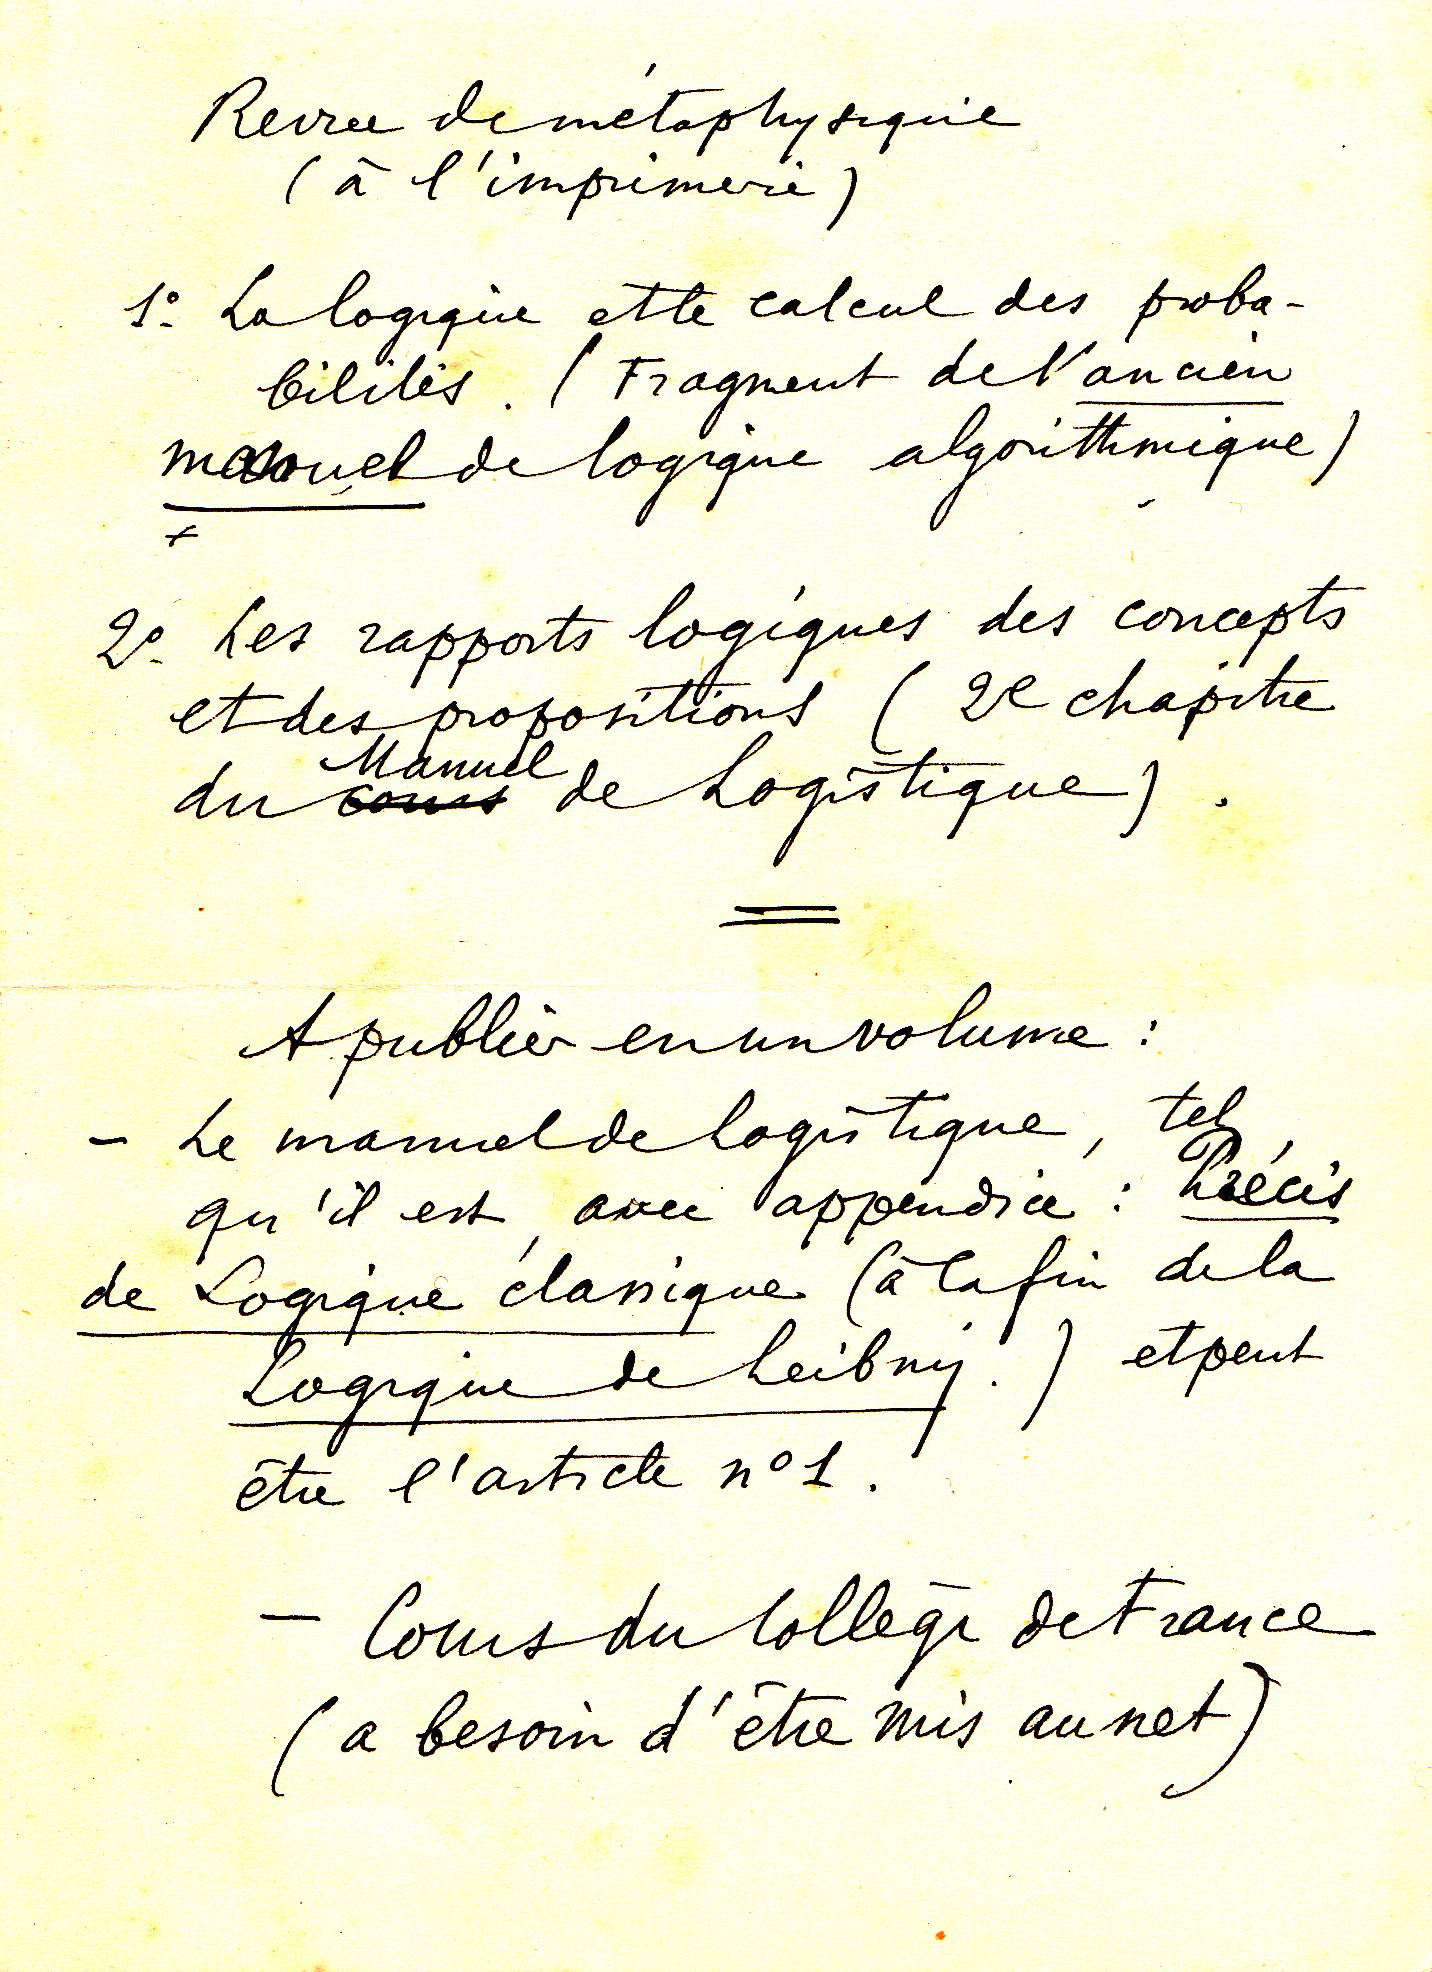 Revue de métaphysique
(à l'imprimerie)
1º. La logique et le calcul des proba-
bilités. (Fragment de l'ancien
manuel de logique algorithmique)
+
2º. Les rapports logiques des concepts
et des propositions (2e chapitre
Manuel
du cours de Logistique).
A publier en un volume :
- Le manuel de Logistique, tel
qu'il est, avec appendice : Précis
de Logique classique (à la fin de la
Logique de Leibniz.) et peut
être l'article nº 1.
- Cours du Collège de France
(a besoin d'être mis au net)